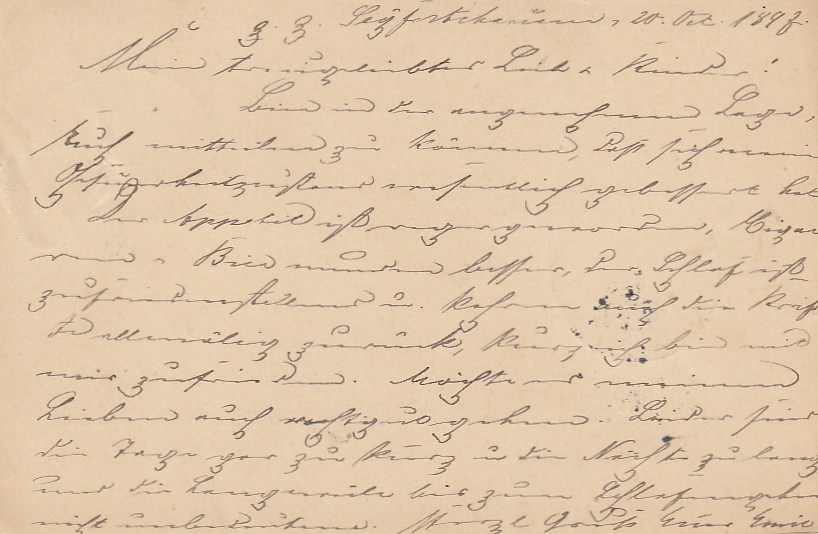 z. Z. Seyfertshausen, 20. Oct. 1897.
Mein treugeliebtes Lieb & Kinder!
Bin in der angenehmen Lage,
Euch mittheilen zu können, daß sich mein
Gesundheitszustand wesentlich gebessert hat
Der Appetit ist reger geworden, Cigar
ren & Bier munden besser, der Schlaf ist
zufriedenstellend u. kehren auch die Kräf
te allmälig zurück, kurz ich bin mit
mir zufrieden. Möchte es meinen
Lieben auch recht gut gehen. Leider sind
die Tage gar zu kurz u die Nächte zu lang
und die Langeweile bis zum Schlafengehen
nicht unbedeutend. Herzl Gruß Euer Emil